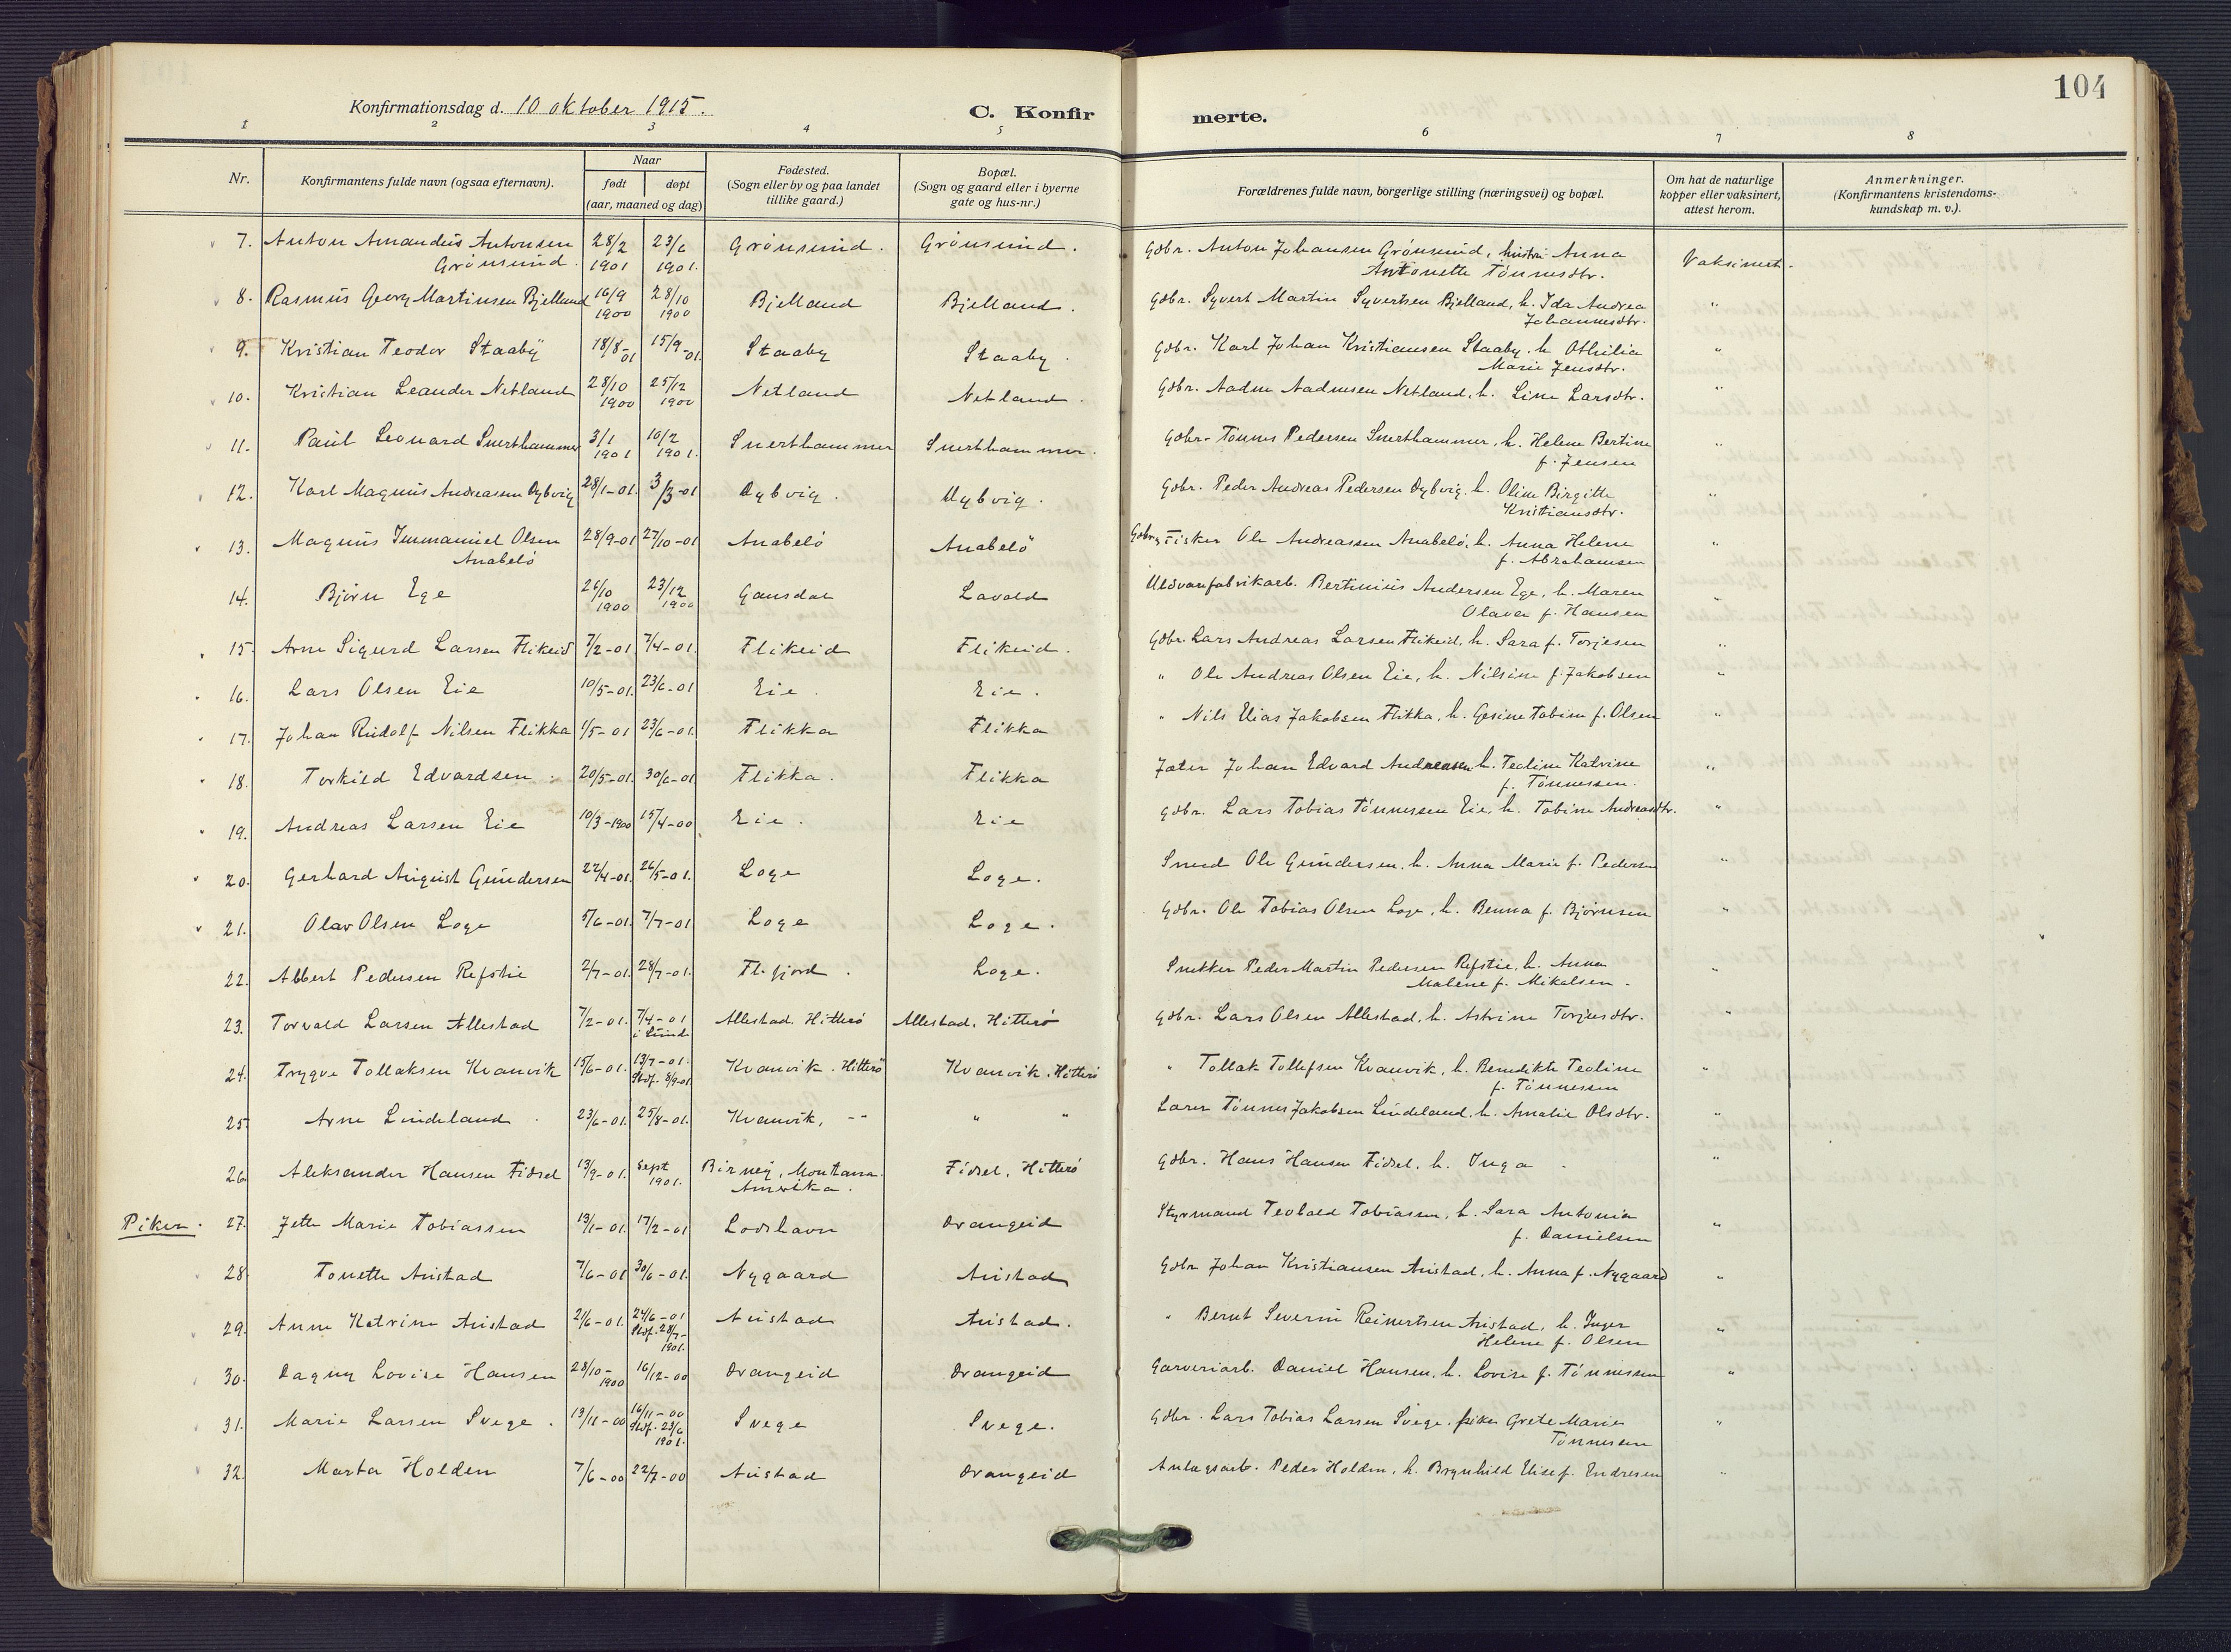 104
Konfirmationsdag d. 10 oktober 1915.
C. Konfirmerte.
1 2 3 4 5 6 7 8
Nr. | Konfirmantens fulde navn (ogsaa efternavn). | Naar født | døpt (aar, maaned og dag) | Fødested. (Sogn eller by og paa landet tillike gaard.) | Bopæl. (Sogn og gaard eller i byerne gate og hus-nr.) | Forældrenes fulde navn, borgerlige stilling (næringsvei) og bopæl. | Om hat de naturlige kopper eller vaksinert, attest herom. | Anmerkninger. (Konfirmantens kristendoms-kundskap m. v.).
7. Anton Amandus Antonsen Grønsund. 28/2 1901 23/6 1901. Grønsund. Grønsund. Gdbr. Anton Johansen Grønsund, hustru Anna Antonette Tønnesdtr. Vaksinert.
8. Rasmus Georg Martinsen Bjelland 16/9 1900 28/10 1900 Bjelland Bjelland. Gdbr. Syvert Martin Syvertsen Bjelland, h. Ida Andrea Johannesdtr. "
9. Kristian Teodor Staaby 18/8-01 15/9-01. Staaby Staaby. Gdbr. Karl Johan Kristiansen Staaby, h. Othilia Marie Jensdtr. "
10. Kristian Leander Netland 28/10 1900 25/12 1900 Netland Netland. Gdbr. Aadne Aadnesen Netland, h. Line Larsdtr. "
11. Paul Leonard Snerthammer 3/1 1901 10/2 1901. Snerthammer Snerthammer. Gdbr. Tønnes Pedersen Snerthammer, h. Helene Bertine f. Jensen "
12. Karl Magnus Andreassen Dybvig 28/1-01. 3/3-01 Dybvig. Dybvig. Gdbr. Peder Andreas Pedersen Dybvig, h. Oline Birgitte Kristiansdtr. "
13. Magnus Immanuel Olsen Anabelø 28/9-01 27/10-01 Anabelø Anabelø Gdbr. Fisker Ole Andreassen Anabelø, h. Anna Helene f. Abrahamsen "
14. Bjørn Ege 26/10 1900 23/12 1900 Gausdal Lavold Uldvarefabrikarb. Bertinius Andersen Ege, h. Maren Olava f. Hansen "
15. Arne Sigurd Larsen Flikeid 7/2-01 7/4-01. Flikeid Flikeid. Gdbr. Lars Andreas Larsen Flikeid, h. Sara f. Torjesen "
16. Lars Olsen Eie 10/5-01. 23/6-01 Eie. Eie. " Ole Andreas Olsen Eie, h. Nilsine f. Jakobsen "
17. Johan Rudolf Nilsen Flikka 1/5-01 23/6-01. Flikka Flikka " Nils Elias Jakobsen Flikka, h. Gesine Tobine f. Olsen "
18. Torkild Edvardsen. 20/5-01. 30/6-01 Flikka. Flikka Jæter Johan Edvard Andreassen h. Teoline Katrine f. Tønnessen. "
19. Andreas Larsen Eie 10/3-1900 15/4-00 Eie. Eie Gdbr. Lars Tobias Tønnessen Eie, h. Tobine Andreasdtr. "
20. Gerhard August Gundersen 22/4-01. 26/5-01. Loge Loge. Smed Ole Gundersen, h. Anna Marie f. Pedersen "
21. Olav Olsen Loge 5/6-01. 7/7-01 Loge Loge. Gdbr. Ole Tobias Olsen Loge, h. Benna f. Bjørnsen "
22. Albert Pedersen Refstie 2/7-01. 28/7-01. Fl.fjord. Loge. Snekker Peder Martin Pedersen Refstie, h. Anna Malene f. Mikalsen. "
23. Torvald Larsen Allestad 7/2-01. 7/4-01 i Lund Allestad. Hitterø Allestad, Hitterø Gdbr. Lars Olsen Allestad, h. Astrine Torjusdtr. "
24. Trygve Tollaksen Kvanvik 15/6-01. 13/7-01. Stdf. 8/9-01 Kvanvik. Hitterø Kvanvik. Hitterø " Tollak Tollefsen Kvanvik, h. Benedikte Teoline f. Tønnessen "
25. Arne Lindeland 23/6-01. 25/8-01. Kvanvik, -- " " Lærer Tønnes Jakobsen Lindeland, h. Amalie Olsdtr. "
26. Aleksander Hansen Fidsel 13/9-01. Sept 1901. Birney, Montana. Amerika. Fidsel, Hitterø Gdbr. Hans Hansen Fidsel, h. Inga. "
Piker. 27. Jette Marie Tobiassen 19/1-01. 17/2-01 Lodshavn Drangeid Styrmand Teobald Tobiassen, h. Sara Antonia f. Danielsen "
28. Tonette Austad 7/6-01 30/6-01. Nygaard Austad Gdbr Johan Kristiansen Austad, h. Anna f. Nygaard "
29. Anne Katrine Austad 21/6-01. 24/6-01 Stdf. 28/7-1901. Austad Austad. " Bernt Severin Reinertsen Austad, h. Inger Helene f. Olsen "
30. Dagny Lovise Hansen 28/10-1900 16/12-00 Drangeid Drangeid Garveriarb. Daniel Hansen, h. Lovise f. Tønnessen "
31. Marie Larsen Svege. 13/11-00 16/11-00 Stdf. 23/6 1901. Svege Svege. Gdbr. Lars Tobias Larsen Svege, pike Grete Marie Tønnesen "
32. Marta Holden 7/6-00 22/7-00 Austad Drangeid Anlægsarb. Peder Holden, h. Brynhild Elise f. Endresen "